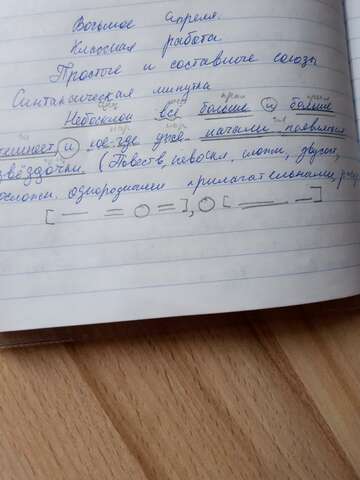 Восьмое апреля.
Классная работа
Простые и составные союзы
Синтаксическая минутка
Небосклон всё больше и больше
темнеет и кое-где уже начали появляться
звёздочки. (Повеств, невоскл, сложн, двусост,
[— = О =], О [= —]